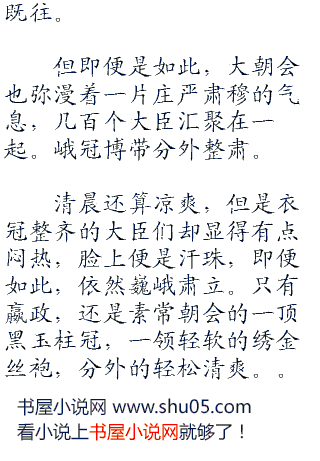 既往。
但即便是如此，大朝会
也弥漫着一片庄严肃穆的气
息，几百个大臣汇聚在一
起。峨冠博带分外整肃。
清晨还算凉爽，但是衣
冠整齐的大臣们却显得有点
闷热，脸上便是汗珠，即便
如此，依然巍峨肃立。只有
嬴政，还是素常朝会的一顶
黑玉柱冠，一领轻软的绣金
丝袍，分外的轻松清爽。。
书屋小说网 www.shu05.com
看小说上书屋小说网就够了！